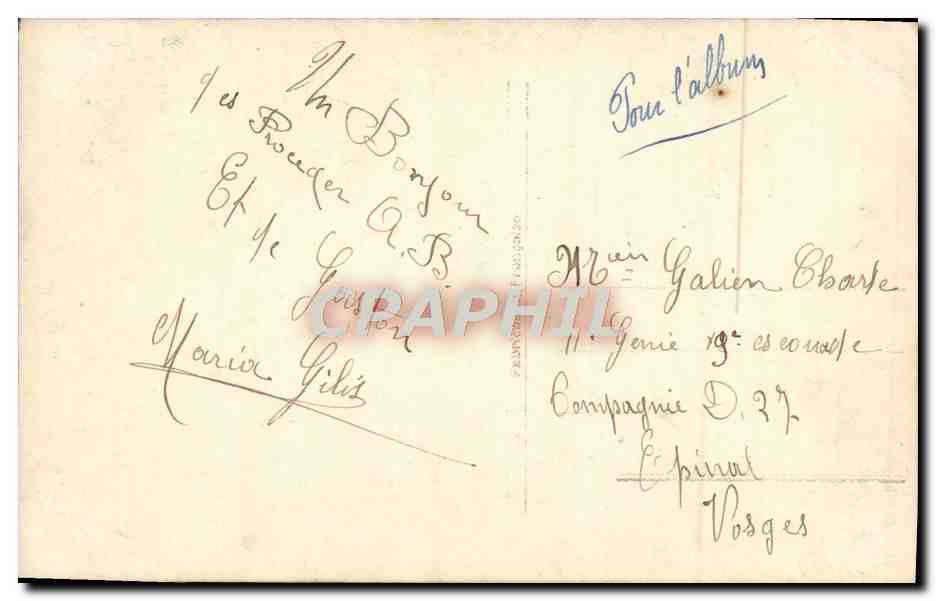 Un Bonjour
des Proceger A.B
Et de Gaston
Maria Gilis
Pour l'album
Galien Charle
11e Genie 19e escouade
Compagnie D. 27
Epinal
Vosges
CPARHIL